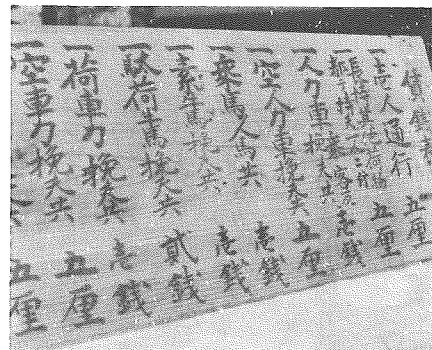 賃銭表
一壱人通行 五厘
一長持 五厘
一人力車挽夫共 壱銭
一空人力車挽夫共 五厘
一乗馬人馬共 壱銭
一素馬挽夫共 壱銭
一駄荷馬挽夫共 貳銭
一荷車力挽夫共 壱銭
一空車力挽夫共 五厘
夫共 五厘